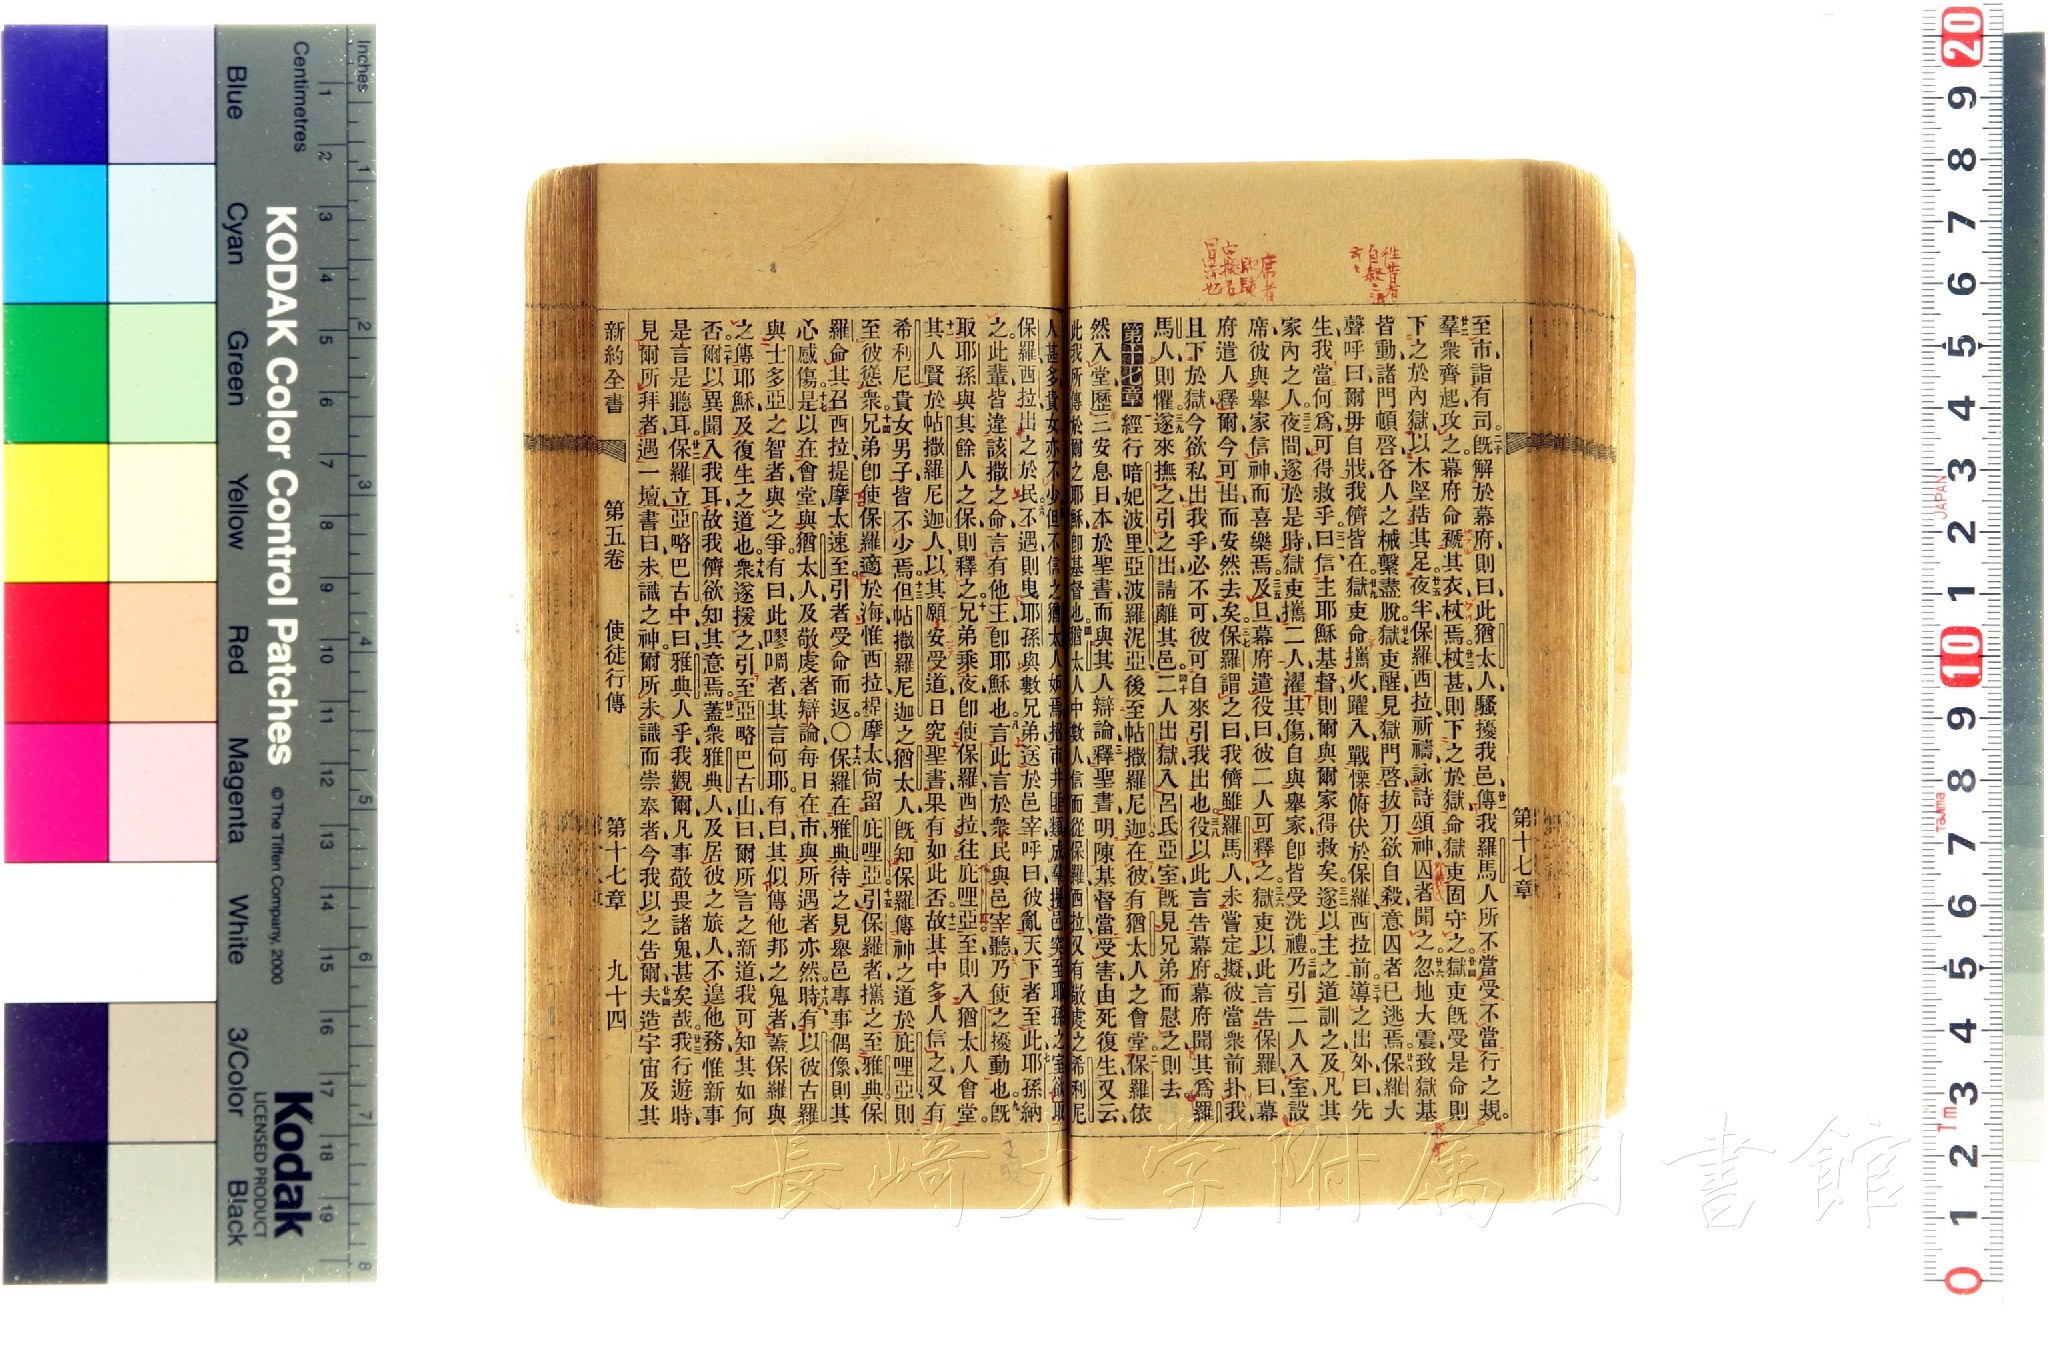 第十七章
至市詣有司旣解於幕府則曰此猶太人騷擾我邑傳我羅馬人所不當受不當行之規
羣衆齊起攻之幕府命褫其衣杖焉杖甚則下之於獄命獄吏固守之獄吏旣受是命則
下之於內獄以木堅梏其足夜半保羅西拉祈禱詠詩頌神囚者聞之忽地大震致獄基
皆動諸門頓啓各人之械繫盡脫獄吏醒見獄門啓拔刀欲自殺意囚者已逃焉保羅大
聲呼曰爾毋自戕我儕皆在獄吏命攜火躍入戰慄俯伏於保羅西拉前導之出外曰先
生我當何爲可得救乎曰信主耶穌基督則爾與爾家得救矣遂以主之道訓之及凡其
家內之人夜間遂於是時獄吏攜二人濯其傷自與舉家卽皆受洗禮乃引二人入室設
席彼與舉家信神而喜樂焉及旦幕府遣役曰彼二人可釋之獄吏以此言告保羅曰幕
府遣人釋爾今可出而安然去矣保羅謂之曰我儕雖羅馬人未嘗定擬彼當衆前扑我
且下於獄今欲私出我乎必不可彼可自來引我出也役以此言告幕府幕府聞其爲羅
馬人則懼遂來撫之引之出請離其邑二人出獄入呂氏亞室旣見兄弟而慰之則去
第十七章 經行暗妃波里亞波羅泥亞後至帖撒羅尼迦在彼有猶太人之會堂保羅依
然入堂歷三安息日本於聖書而與其人辯論釋聖書明陳基督當受害由死復生又云
此我所傳於爾之耶穌卽基督也猶太人中數人信而從保羅西拉又有敬虔之希利尼
人甚多貴女亦不少但不信之猶太人妬焉招市井匪類成羣擾邑突至耶孫之室欲取
保羅西拉出之於民不遇則曳耶孫與數兄弟送於邑宰呼曰彼亂天下者至此耶孫納
之此輩皆違該撒之命言有他王卽耶穌也言此言於衆民與邑宰聽乃使之擾動也旣
取耶孫與其餘人之保則釋之兄弟乘夜卽使保羅西拉往庇哩亞至則入猶太人會堂
其人賢於帖撒羅尼迦人以其願安受道日究聖書果有如此否故其中多人信之又有
希利尼貴女男子皆不少焉但帖撒羅尼迦之猶太人旣知保羅傳神之道於庇哩亞則
至彼慫衆兄弟卽使保羅適於海惟西拉提摩太尙留庇哩亞引保羅者攜之至雅典保
羅命其召西拉提摩太速至引者受命而返〇保羅在雅典待之見舉邑專事偶像則其
心感傷是以在會堂與猶太人及敬虔者辯論每日在市與所遇者亦然時有以彼古羅
與士多亞之智者與之爭有曰此嘐啁者其言何耶有曰其似傳他邦之鬼者蓋保羅與
之傳耶穌及復生之道也衆遂援之引至亞略巴古山曰爾所言之新道我可知其如何
否爾以異聞入我耳故我儕欲知其意焉蓋衆雅典人及居彼之旅人不遑他務惟新事
是言是聽耳保羅立亞略巴古中曰雅典人乎我觀爾凡事敬畏諸鬼甚矣哉我行遊時
見爾所拜者遇一壇書曰未識之神爾所未識而崇奉者今我以之告爾夫造宇宙及其
新約全書 第五卷 使徒行傳 第十七章 九十四
長崎大学附属図書館
KODAK Color Control Patches
© The Tiffen Company, 2000
Kodak
LICENSED PRODUCT
Inches
Centimetres
Blue
Cyan
Green
Yellow
Red
Magenta
White
3/Color
Black
JAPAN
Tajima